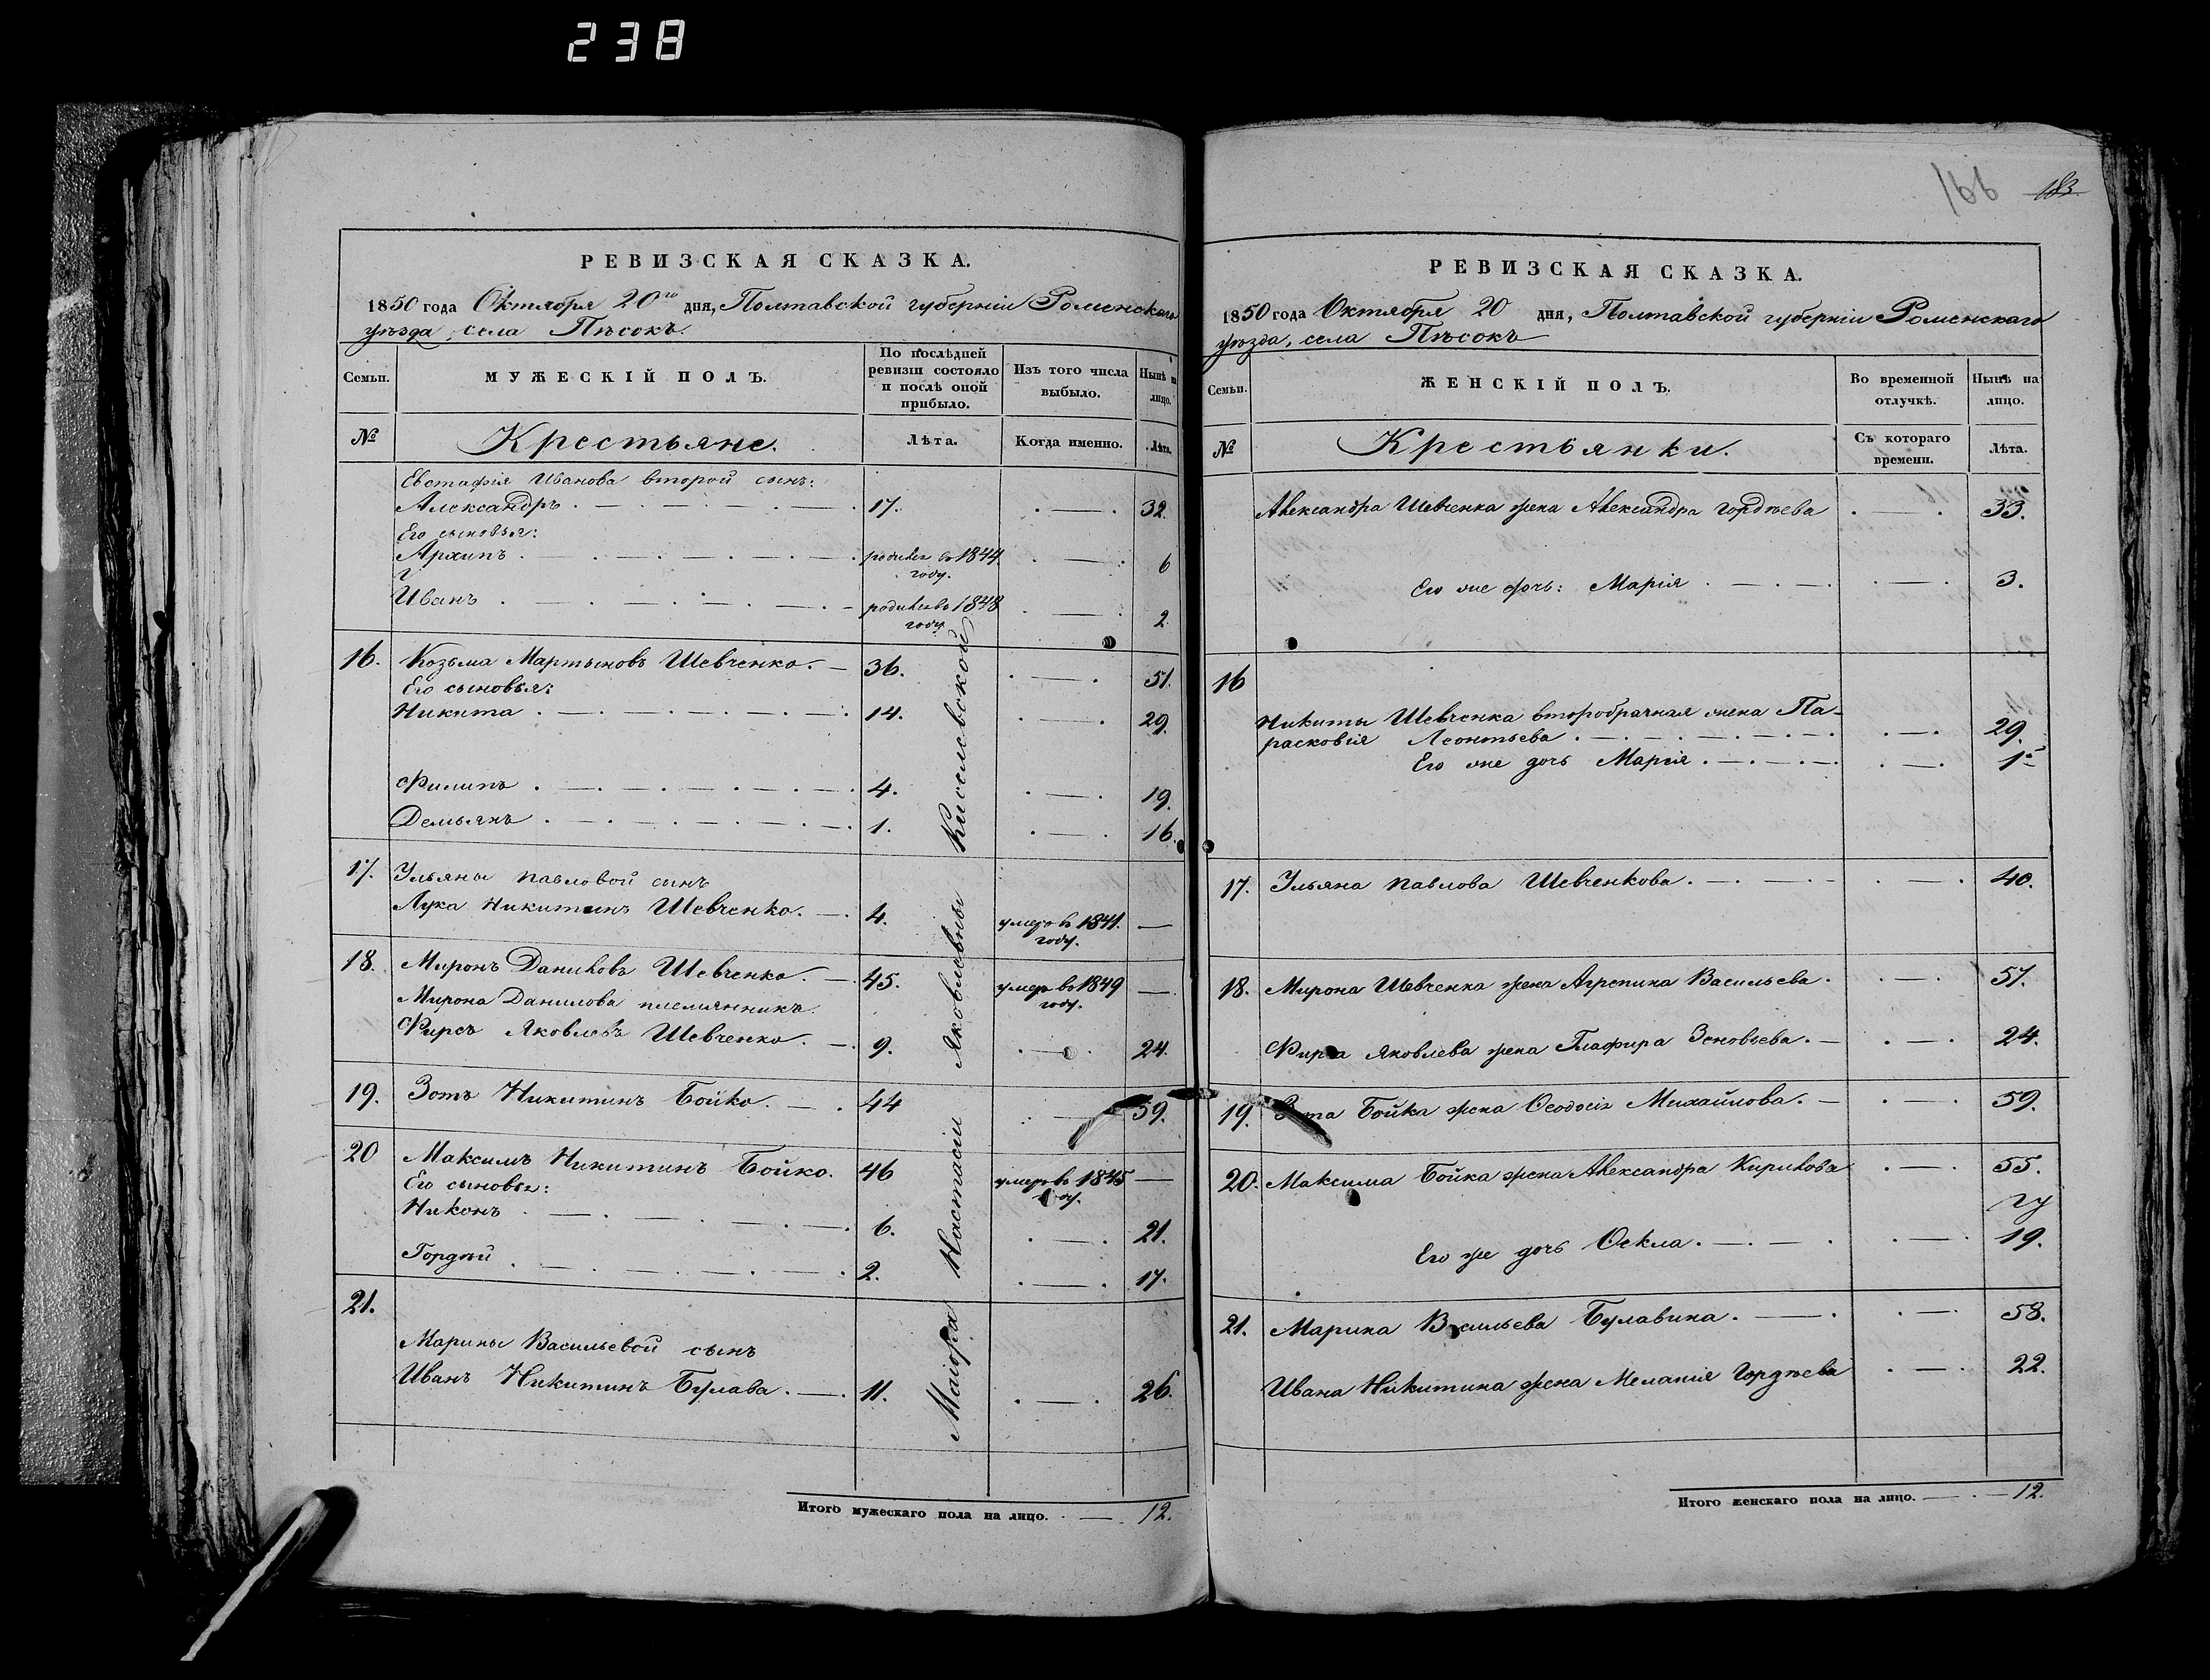 238
РЕВИЗСКАЯ СКАЗКА.
1850 года Октября 20го дня, Полтавской губерніи Роменскаго
уѣзда, села Пѣсокъ.
Семьи.
МУЖЕСКІЙ ПОЛЪ.
По послѣдней
ревизіи состояло
и послѣ оной
прибыло.
Изъ того числа
выбыло.
Нынѣ на
лицо.
№
Крестьяне.
Лѣта.
Когда именно.
Лѣта.
Евстафія Иванова второй сынъ:
Александръ 17. 32.
Его сыновья:
Архипъ родился въ 1844 6
году.
Иванъ родился въ 1848 2
году
16. Козьма Мартыновъ Шевченко. 36. 51.
Его сыновья:
Никита 14. 29.
Филипъ 4. 19.
Демьянъ 1. 16.
17. Ульяны Павловой сынъ
Лука Никитинъ Шевченко. 4. умеръ въ 1841. —
году.
18. Миронъ Даниловъ Шевченко. 45. умеръ въ 1849 —
году.
Мирона Данилова племянникъ
Фирсъ Яковлевъ Шевченко. 9. 24.
19. Зотъ Никитинъ Бойко. 44 59.
20 Максимъ Никитинъ Бойко. 46 умеръ въ 1845 —
году.
Его сыновья:
Никонъ 6. 21.
Гордѣй 2. 17.
21.
Марины Васильевой сынъ
Иванъ Никитинъ Булава. 11. 26.
Маіора Настасіи Яковлевны Киселевской
Итого мужескаго пола на лицо. 12.
166 183
РЕВИЗСКАЯ СКАЗКА.
1850 года Октября 20 дня, Полтавской губерніи Роменскаго
уѣзда, села Пѣсокъ
Семьи.
ЖЕНСКІЙ ПОЛЪ.
Во временной
отлучкѣ.
Нынѣ на
лицо.
№
Крестьянки.
Съ котораго
времени.
Лѣта.
Александра Шевченка жена Александра Гордѣева 33.
Его же дочь: Марія 3.
16
Никиты Шевченка второбрачная жена Па-
расковія Леонтьева 29.
Его же дочь Марія 1.
17. Ульяна Павлова Шевченкова. 40.
18. Мирона Шевченка жена Агрепина Васильева. 57.
Фирса Яковлева жена Глафира Зеновьева. 24.
19. Зота Бойка жена Ѳеодосія Михайлова. 59.
20. Максима Бойка жена Александра Кирилова 55.
Его же дочь Ѳекла. 19.
21. Марина Васильева Булавина. 58.
Ивана Никитина жена Меланія Гордѣева 22.
Итого женскаго пола на лицо. 12.